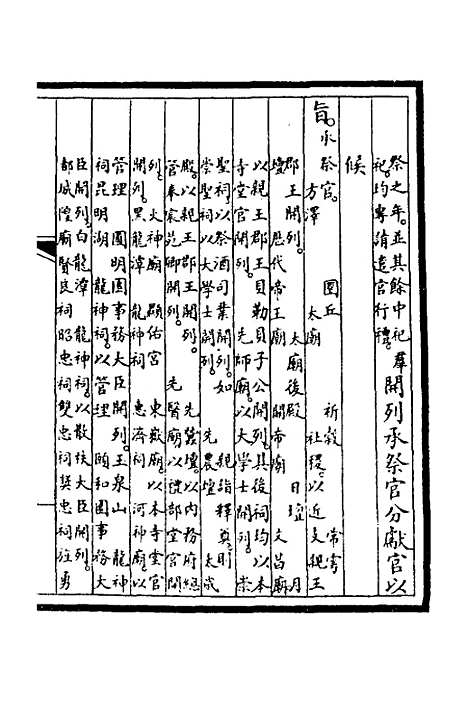 祭之年並其餘中祀
祀。均專請遣官行禮。
羣開列承祭官分獻官以
候
旨。承祭官。 圜丘 祈穀 常雩
方澤 太廟 社稷。以近支親王
郡王開列。 太廟後殿 日壇 月
壇 歷代帝王廟 關帝廟 文昌廟
以親王郡王貝勒貝子公開列。其後祠均以本
寺堂官開列。 先師廟。以大學士開列。崇
聖祠以祭酒司業開列。如 親詣釋奠。則
崇聖祠以大學士開列。 先農壇 太歲
殿。以親王郡王開列。 先蠶壇。以內務府總
管奉宸苑卿開列。 先醫廟以禮部堂官開
列。 火神廟 顯佑宮 東嶽廟。以本寺堂官
開列。黑龍潭 龍神祠 惠濟祠 河神廟。以
管理 圓明園事務大臣開列。玉泉山 龍神
祠昆明湖 龍神祠。以管理 頤和園事務大
臣開列。白龍潭 龍神祠。以散秩大臣開列。
都城隍廟賢良祠昭忠祠雙忠祠奬忠祠旌勇